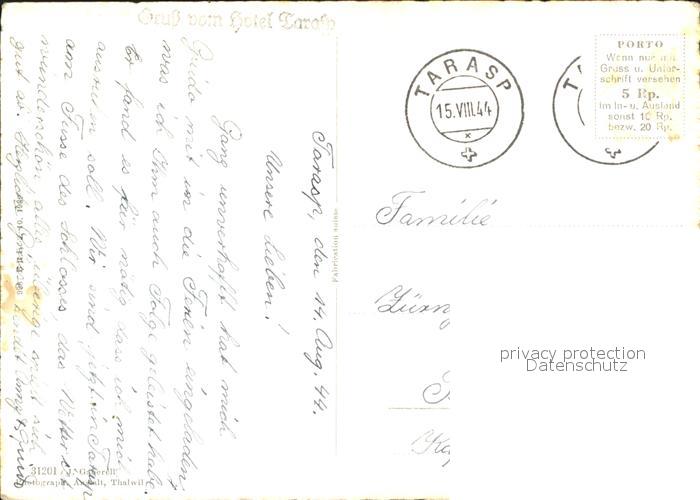 Gruß vom Hotel Tarasp
Tarasp, den 14. Aug. 44.
Unsere Lieben!
Ganz unverhofft hat mich
Guido mit in die Ferien eingeladen,
was ich Ihm auch Folge geleistet habe.
Er fand es für nötig dass ich mich
ausruhen soll. Wir sind jetzt in Tarasp
am Fusse des Schlosses, das Wetter ist
wunderschön alles übrige macht sich
gut
31201 J. Gaberell
Photograph, Anstalt, Thalwil
TARASP
15.VIII.44
x
T
PORTO
Wenn nur mit
Gruss u. Unter-
schrift versehen
5 Rp.
im In- u. Ausland
sonst 10 Rp.
bezw. 20 Rp.
Familie
privacy protection
Datenschutz